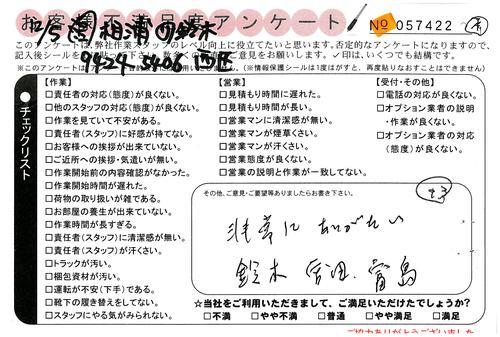 お客様不満足度アンケート
No 057422
鈴木
このアンケートは、弊社作業スタッフのレベル向上に役立てたいと思います。否定的なアンケートになりますので、
記入後シールを
意見をお願いします。✓印は、いくつでも結構です。
(※情報保護シールは1度はがすと、再度貼りなおすことはできません)
チェックリスト
【作業】
□責任者の対応(態度)が良くない。
□他のスタッフの対応(態度)が良くない。
□作業を見ていて不安がある。
□責任者(スタッフ)に好感が持てない。
□お客様への挨拶が出来ていない。
□ご近所への挨拶・気遣いが無い。
□作業開始前の内容確認がなかった。
□作業開始時間が遅れた。
□荷物の取り扱いが雑である。
□お部屋の養生が出来ていない。
□作業時間が長すぎる。
□責任者(スタッフ)に清潔感が無い。
□責任者(スタッフ)が汗くさい。
□トラックが汚い。
□梱包資材が汚い。
□運転が不安(下手)である。
□靴下の履き替えをしてない。
□スタッフにやる気がみられない。
【営業】
□見積もり時間に遅れた。
□見積もり時間が長い。
□営業マンに清潔感が無い。
□営業マンが煙草くさい。
□営業マンが汗くさい。
□営業態度が良くない。
□営業の説明と作業が一致してない。
【受付・その他】
□電話の対応が良くない。
□オプション業者の説明
・作業が良くない。
□オプション業者の対応
(態度)が良くない。
その他、ご意見・ご要望等ありましたらお書き下さい。
非常にありがたい
鈴木 管理 富島
☆当社をご利用いただきまして、ご満足いただけたでしょうか?
□不満 □やや不満 □普通 □やや満足 □満足
ご協力ありがとうございました